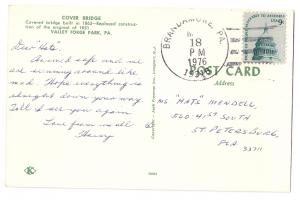 COVER BRIDGE
Covered bridge built in 1865—Replaced construc-
tion of the original of 1851
VALLEY FORGE PARK, PA.
Dear Mats
Arrived safe and we
are running around like
mad. Hope everything is
straight down your way
Till I see you again
Love from us all
Harry
BRANDAMORE, PA.
18
PM
1976
19316
RIGHT OF PEOPLE TO ASSEMBLE
9c
POST CARD
Address
MS "MATS" MENDELL
560-41ST SOUTH
ST. PETERSBURG
FLA
33711
K